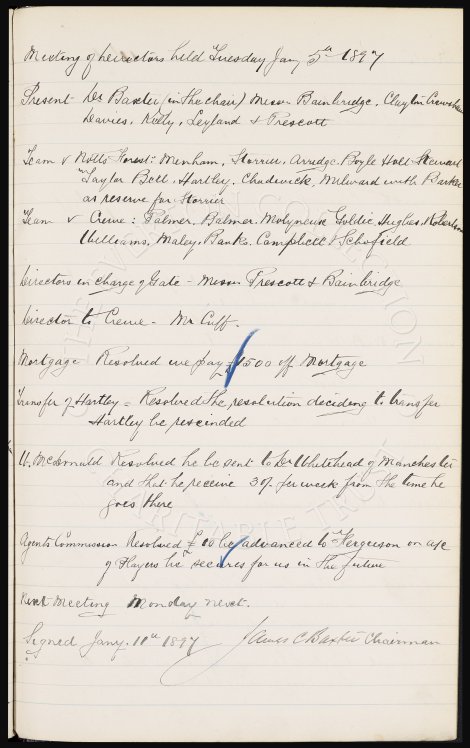 Meeting of Directors held Tuesday Jany 5th 1897
Present - Dr Baxter (in the chair) Messrs Bainbridge, Clayton Crawshaw
Davies, Kelly, Leyland & Prescott
Team v Notts Forest: Menham, Storrier, Arridge, Boyle Holt Stewart
Taylor Bell, Hartley, Chadwick, Milward with Barker
as reserve for Storrier
Team v Crewe: Palmer, Balmer, Molyneux Goldie, Hughes, Robertson
Williams, Maley, Banks, Campbell & Schofield
Directors in charge of Gate - Messrs Prescott & Bainbridge
Director to Crewe - Mr Cuff.
Mortgage Resolved we pay £1500 off Mortgage
Transfer of Hartley = Resolved the resolution deciding to transfer
Hartley be rescinded
W. McDonald Resolved he be sent to Dr Whitehead of Manchester
and that he receive 30/- per week from the time he
goes there
Agents Commission Resolved £10 be advanced to Ferguson on a/c
of Players he secures for us in the future
Next Meeting Monday next.
Signed Jany. 11th 1897 James C Baxter Chairman